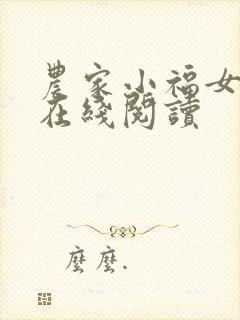 農家小福女
在綫閱讀
麼麼.